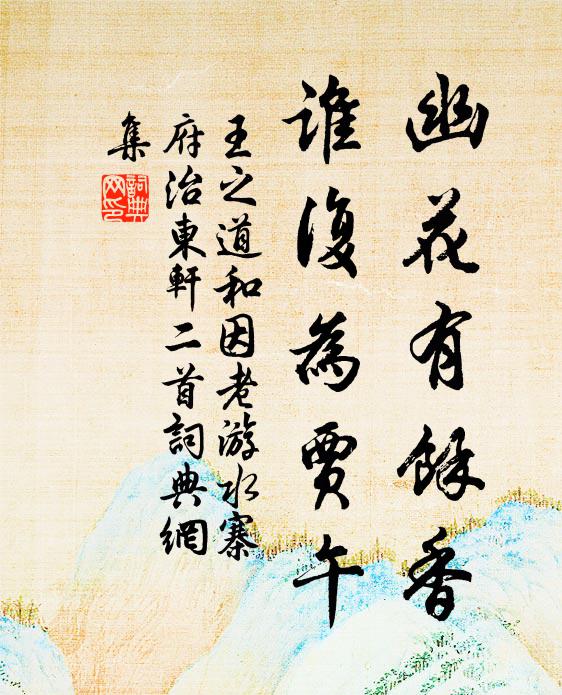 幽花有餘香
誰復為賈午
王之道和因老游水寨
府治東軒二首詞典網
集
詞典
网印